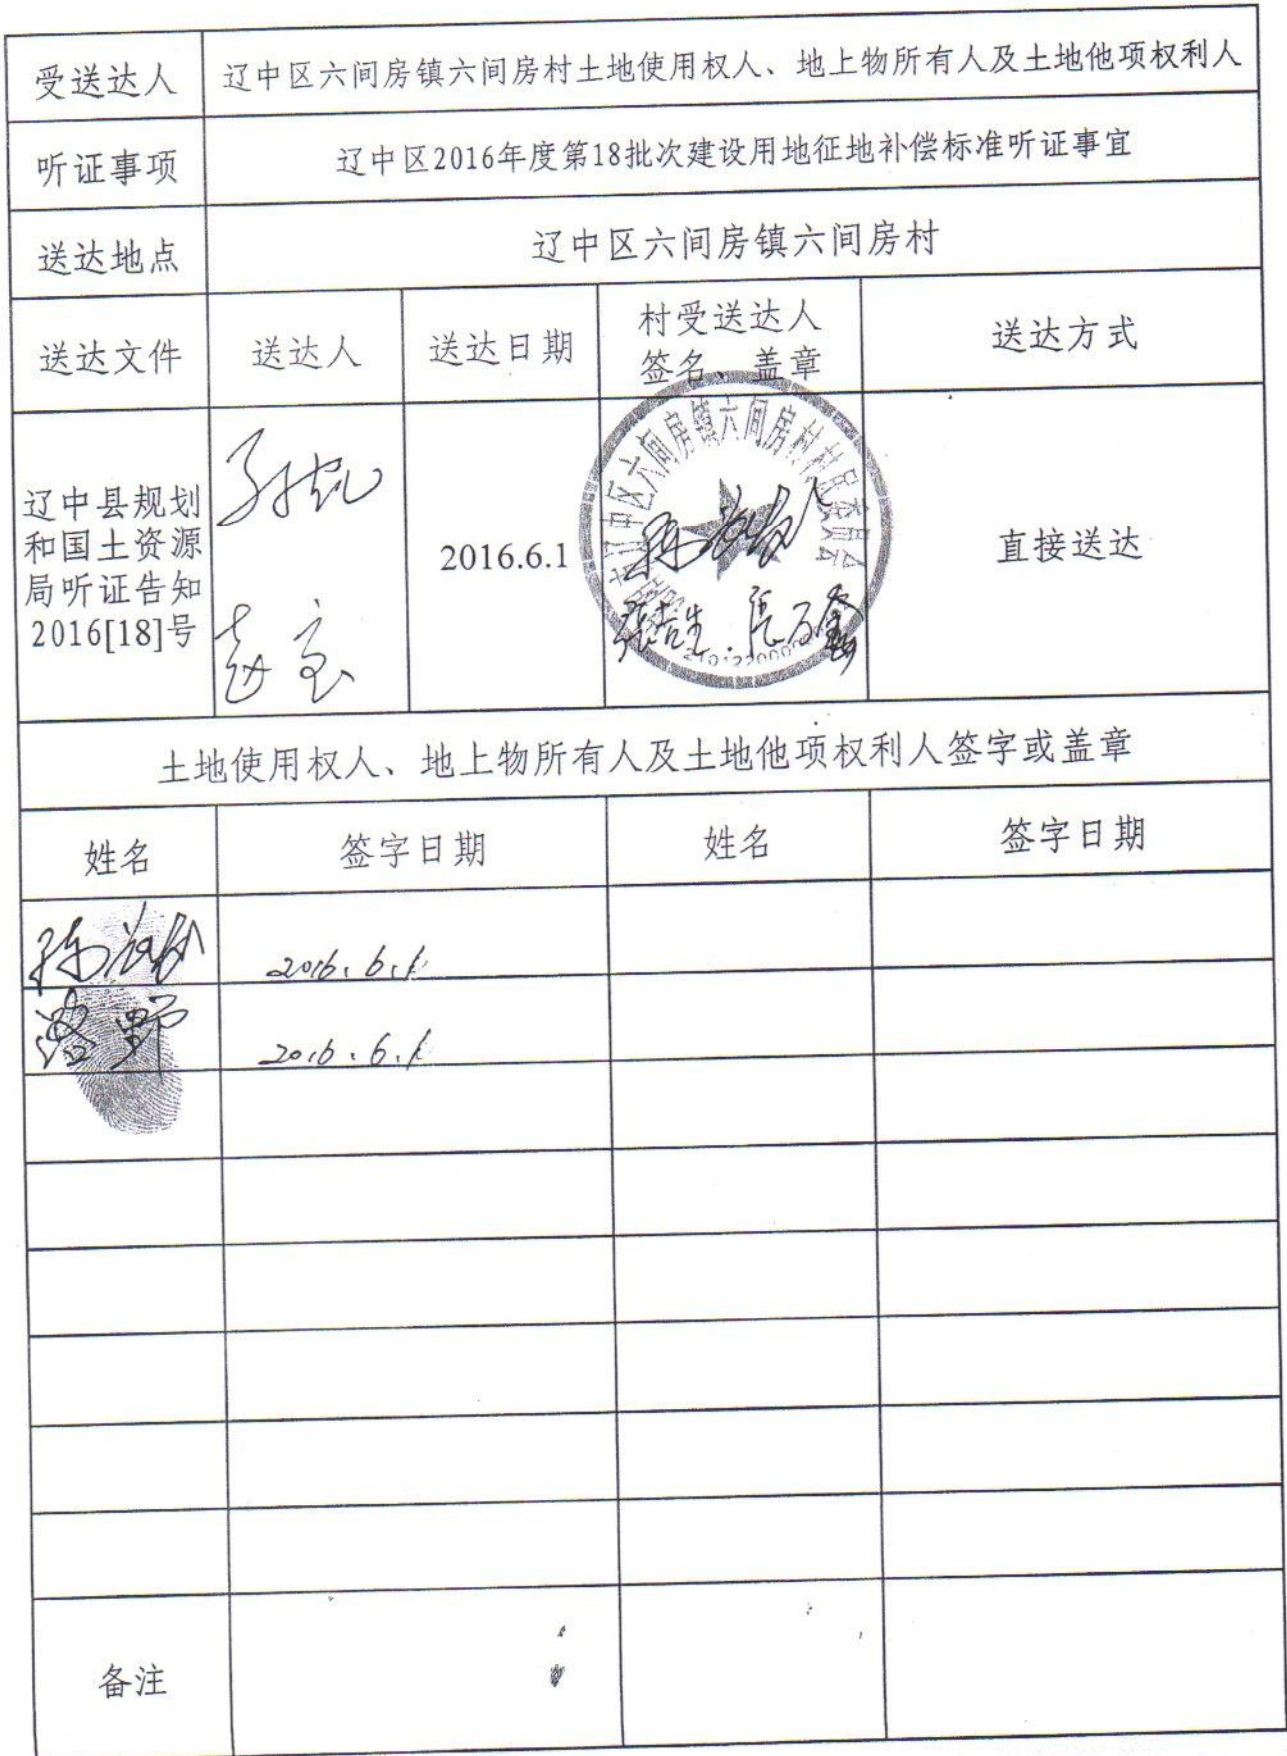 受送达人 辽中区六间房镇六间房村土地使用权人、地上物所有人及土地他项权利人
听证事项 辽中区2016年度第18批次建设用地征地补偿标准听证事宜
送达地点 辽中区六间房镇六间房村
送达文件 送达人 送达日期 村受送达人 送达方式
签名、盖章
辽中县规划
和国土资源
局听证告知
2016[18]号
2016.6.1
直接送达
辽中区六间房镇六间房村村民委员会
土地使用权人、地上物所有人及土地他项权利人签字或盖章
姓名 签字日期 姓名 签字日期
2016.6.1
2016.6.1
备注